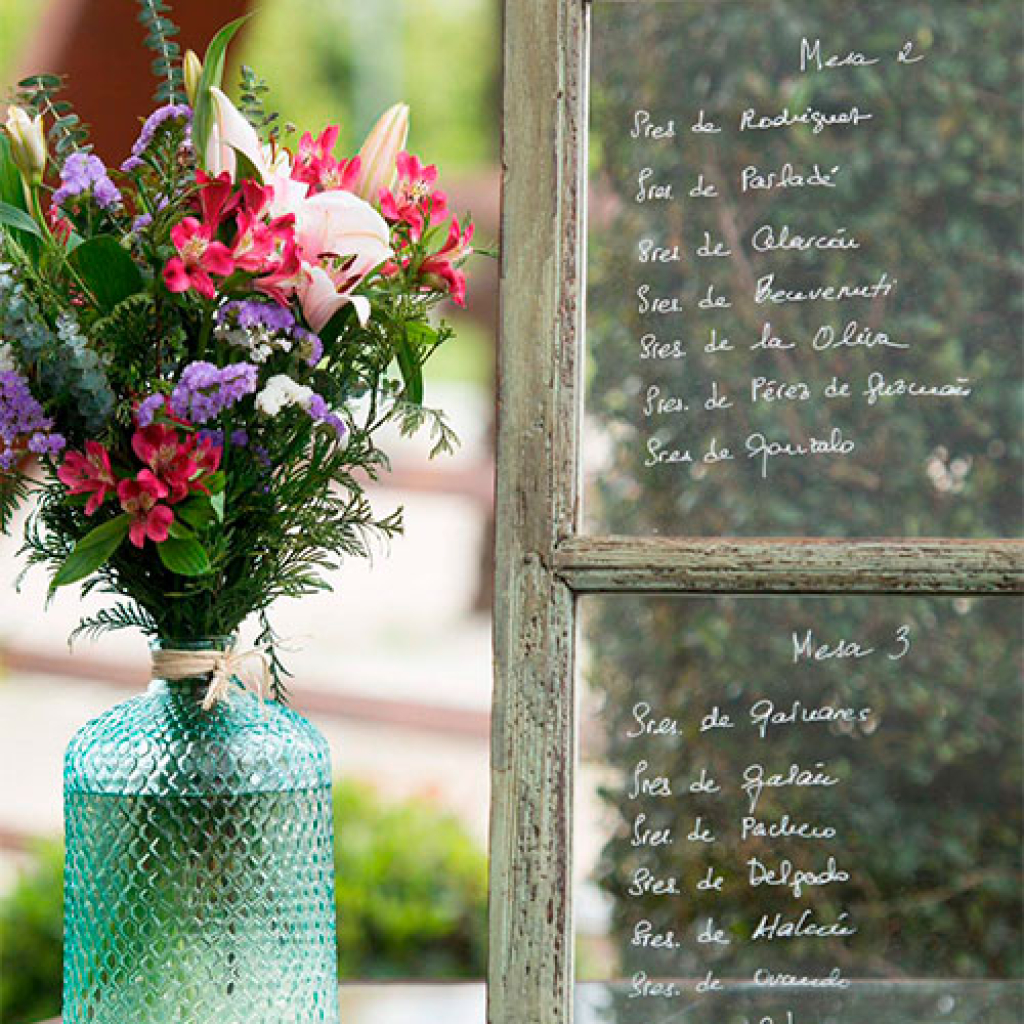 Mesa 2
Sres de Rodriguez
Sres. de Parladé
Sres de Alarcón
Sres. de Benvenuti
Sres de la Oliva
Sres. de Pérez de Guzmán
Sres de Gonzalo
Mesa 3
Sres. de
Sres. de Galán
Sres. de Pacheco
Sres. de Delgado
Sres. de Halcón
Sres. de Ovando